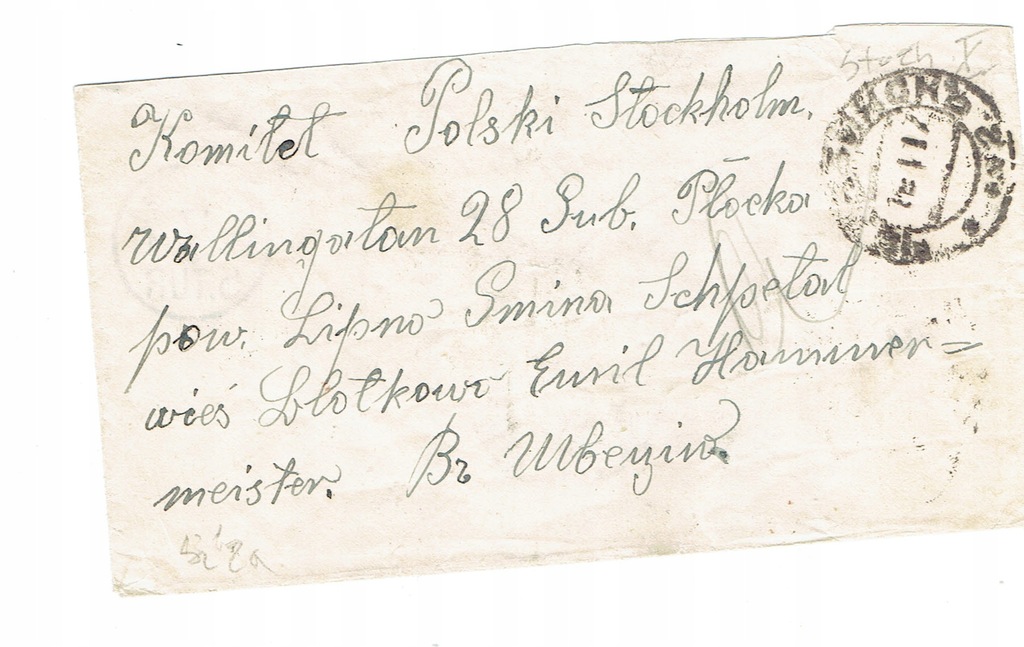 Komitet Polski Stockholm.
Wallingatan 28 Gub. Płocka
pow. Lipno Gmina Schpetal
wieś Blotkowo Emil Hammer=
meister.